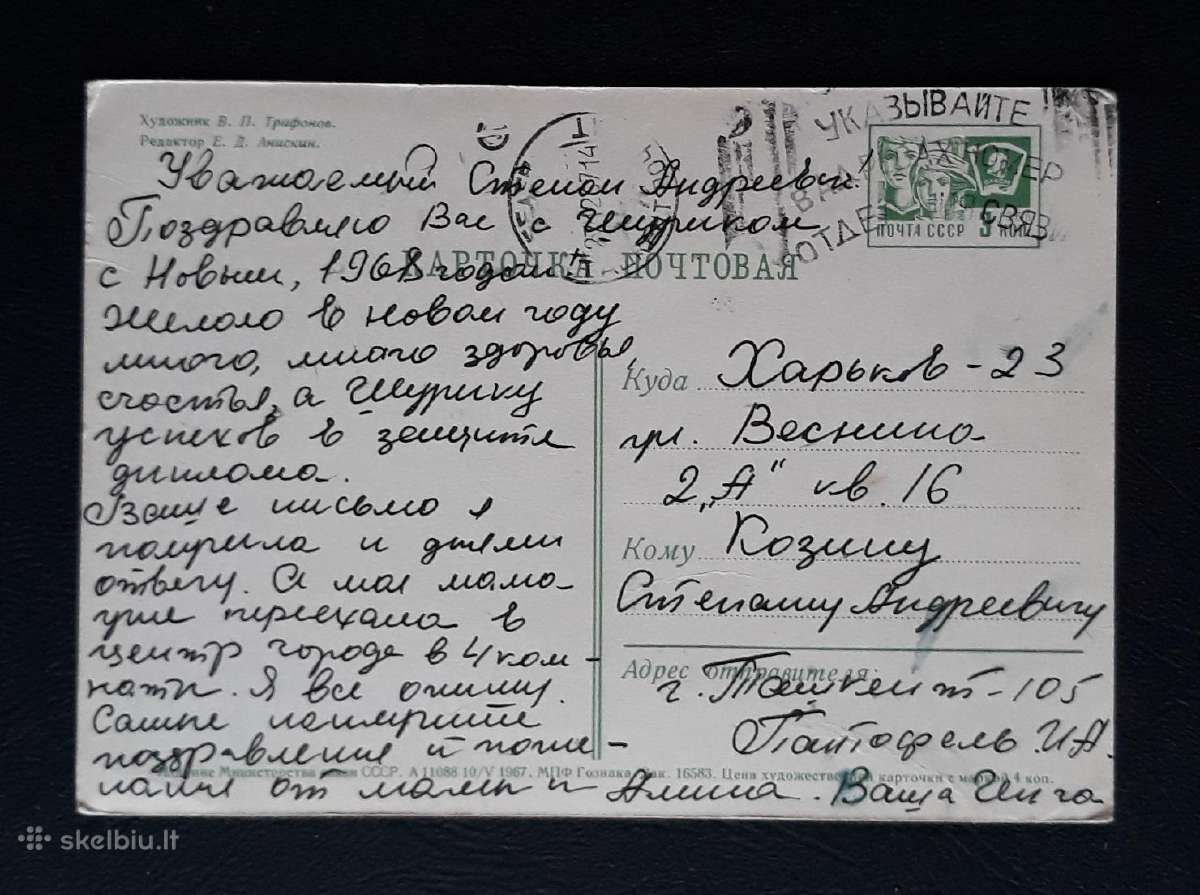 Художник В. П. Трифонов.
Редактор Е. Д. Анискин.
УКАЗЫВАЙТЕ
ПОЧТА СССР КОП
КАРТОЧКА ПОЧТОВАЯ
Уважаемый Степан Андреевич.
Поздравляю Вас с Шуриком
с Новым, 1968 годом!
Желаю в новом году
много, много здоровья,
счастья, а Шурику
успехов в защите
диплома.
Ваше письмо я
получила и днями
отвечу. А моя мама
уже переехала в
центр города в 4 ком-
наты. Я все опишу.
Самые наилучшие
поздравления и поже-
лания от мамы и Алика. Ваша Инга
Куда Харьков-23
ул. Веснина
2 „А" кв. 16
Кому Козину
Степану Андреевичу
Адрес отправителя:
г. Ташкент-105
Пантофель И.А.
Министерства связи СССР. А 11088 10/V 1967. МПФ Гознака. Зак. 16583. Цена художественной карточки с маркой 4 коп.
skelbiu.lt